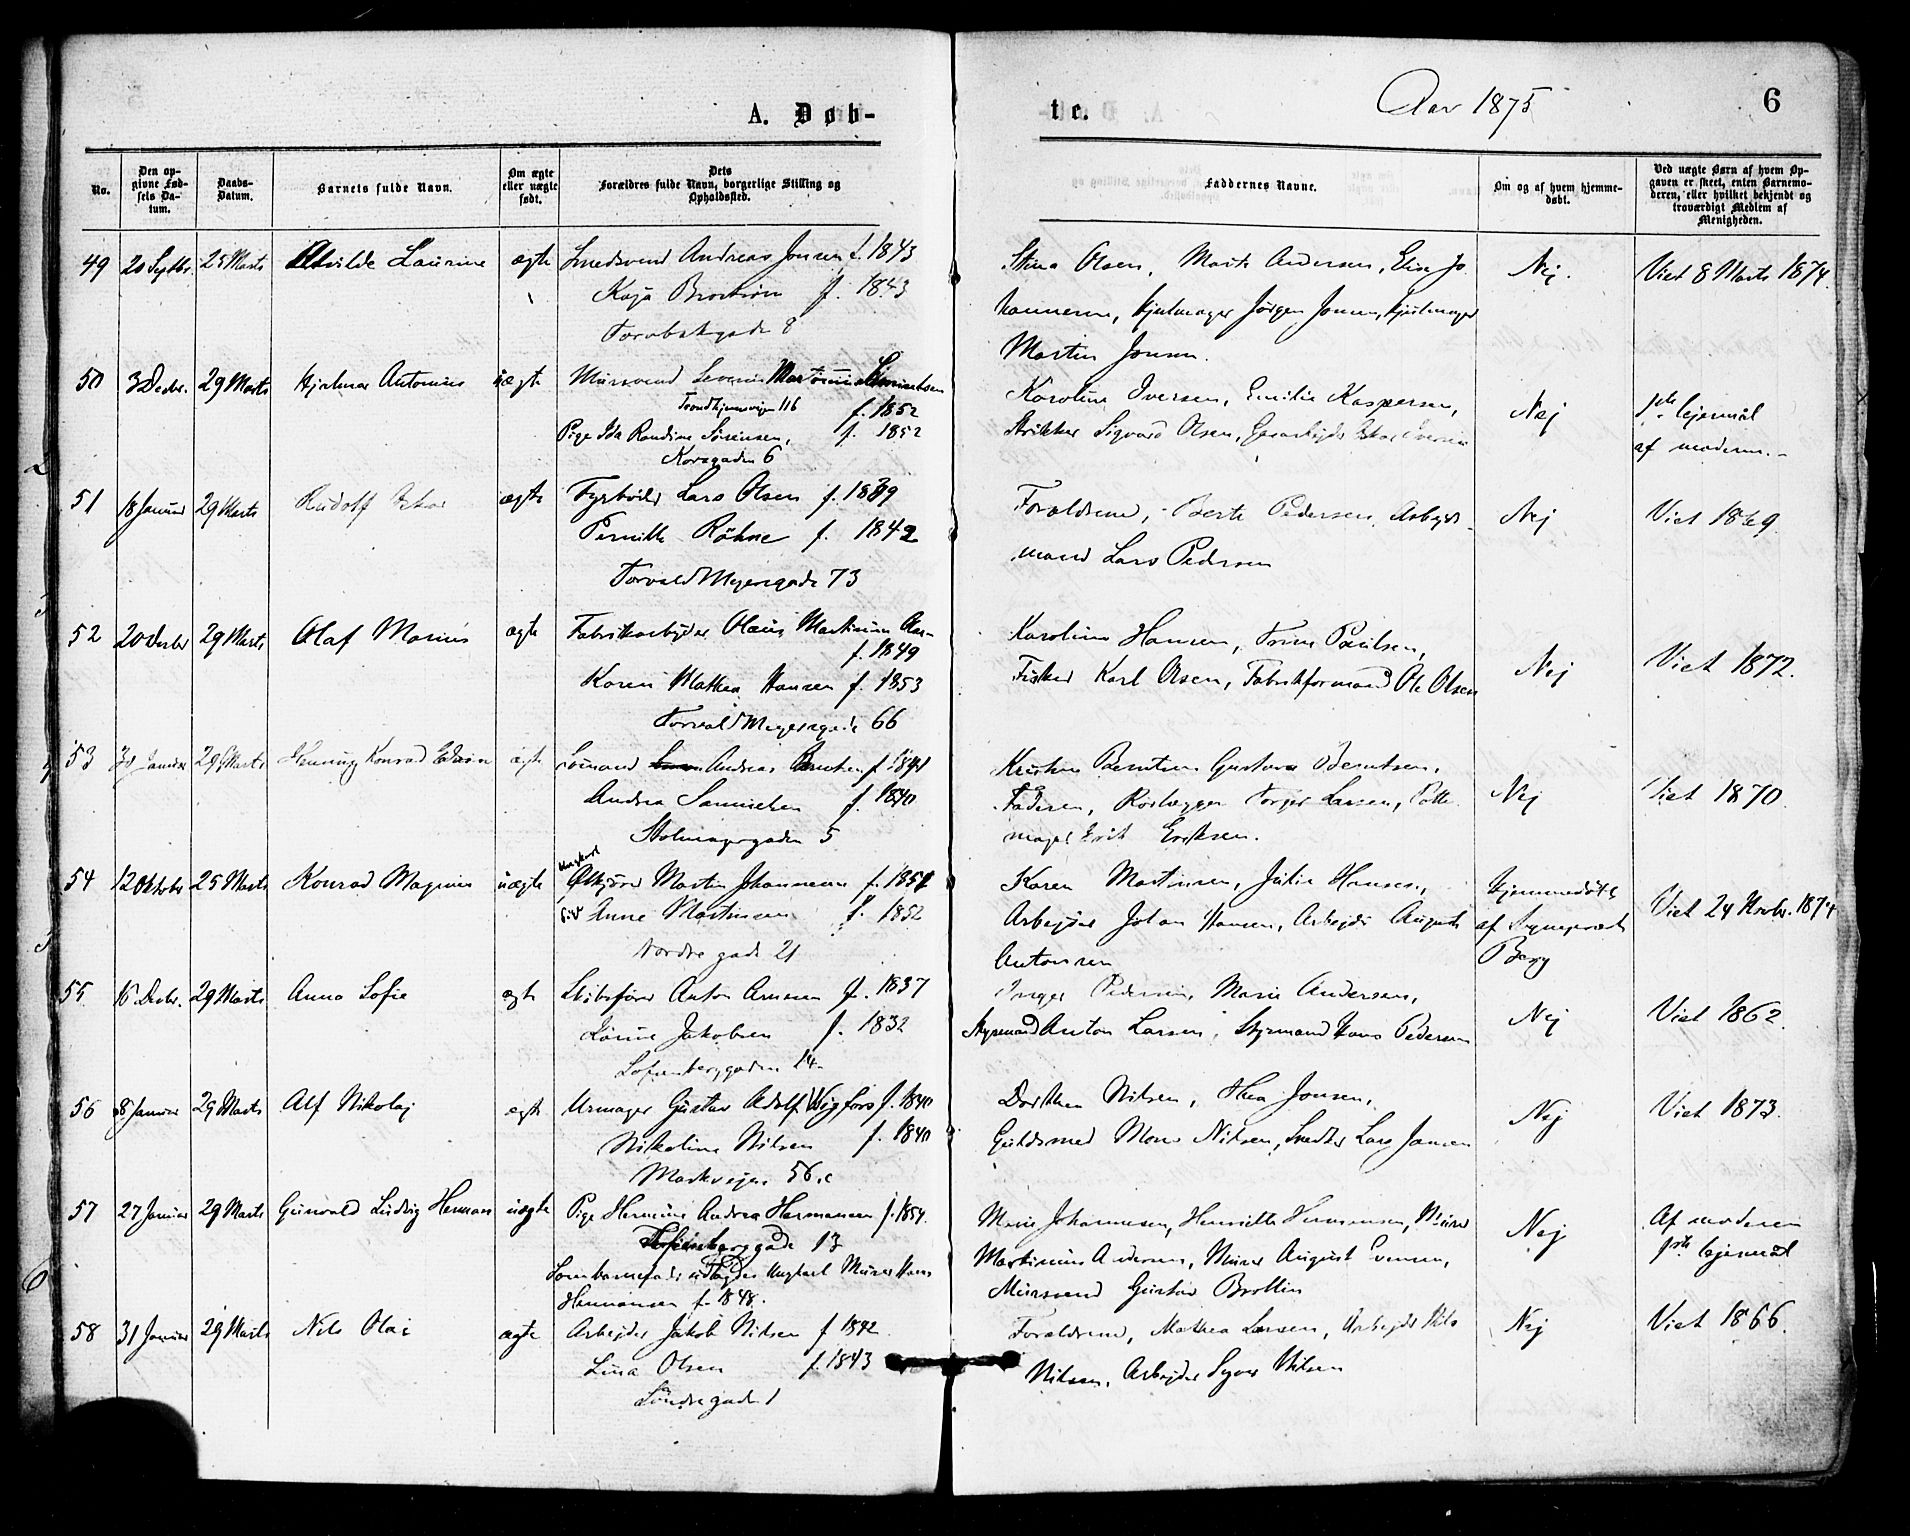 A. Døb-
te.
Aar 1875
6
No.
Den op-
givne Fød-
sels Da-
tum.
Daabs-
Datum.
Barnets fulde Navn.
Om ægte
eller uægte
født.
Dets
Forældres fulde Navn, borgerlige Stilling og
Opholdssted.
Faddernes Navne.
Om og af hvem hjemme-
døbt.
Ved uægte Børn af hvem Op-
gaven er skeet, enten Barnemo-
deren, eller hvilket bekjendt og
troværdigt Medlem af
Menigheden.
49 20 Septbr. 25 Marts Laurine ægte Smedsvend Andreas Jonsen f. 1843
Kaja f. 1843
8
Stina Olsen, Andersen, Elise Jo-
hannesen, Hjulmager Jørgen Jonsen, Hjulmager
Martin Jonsen.
Nej.
Viet 8 Marts 1874.
50 3 Decbr. 29 Marts Hjalmar Antonius uægte Mursvend
Trondhjemsvejen 116 f. 1852
Pige Ida Randine Sørensen, f. 1852
Korsgaden 6
Karoline Iversen, Emilie Kaspersen,
Sigvard Olsen,
Nej
1ste Lejermål
af moderen.-
51 18 Januar 29 Marts Rudolf Oskar ægte Fyrbøder Lars Olsen f. 1839
Pernille Röhne f. 1842
Torvald Meyersgade 73
Forældrene, Berte Pedersen, Arbejds-
mand Lars Pedersen
Nej
Viet 1869.
52 20 Decbr 29 Marts Olaf Marius ægte Fabrikarbejder Olaus Martinius
f. 1849
Karen Mathea Hansen f. 1853
Torvald Meyersgade 66
Karoline Hansen, Trine Paulsen,
Fisker Karl Olsen, Fabrikformand Ole Olsen
Nej
Viet 1872.
53 30 Januar 29 Marts Henning Konrad Edvin ægte Sømand Andreas Berntsen f 1841
Andrea Samuelsen f. 1840
Stolmagergaden 5
Gustava Berntsen,
Torger Larsen, Potte-
mager Erik Eriksen.
Nej
Viet 1870.
54 12 Oktober 25 Marts Konrad Magnus uægte Ungkarl Martin Johannesen f. 1851
Anne Martinsen f. 1852
Nordre gade 21
Karen Martinsen, Julie Hansen,
Arbejder Johan Hansen, Arbejder August
Antonsen
Hjemmedøbt
af Sogneprest
Berg
Viet 24 Novbr. 1874
55. 16 Decbr. 29 Marts Anna Sofie ægte Skibsfører Anton Arnesen f. 1837
Lovise Jakobsen f. 1832
Sofienberggaden 14
Inger Pedersen, Marie Andersen,
Styrmand Anton Larsen, Styrmand Hans Pedersen
Nej
Viet 1862.
56 8 Januar 29 Marts Alf Nikolaj ægte Urmager Gustav Adolf Wigfors f. 1840
Nikoline Nilsen f. 1840
Markvejen 56.c
Dorthea Nilsen, Thea Jonsen,
Guldsmed Mons Nilsen, Snedker Lars Jansen
Nej
Viet 1873.
57 27 Januar 29 Marts Gunvald Ludvig Herman uægte Pige Hermine Andrea Hermansen f. 1854.
Sofienberggade 13
Som barnefader udlagdes Ungkarl Murer Hans
Hermansen f. 1848.
Marie Johannesen, Henriette Hermansen, Murer
Martinius Andersen, Murer August Evensen,
Mursvend Gustav Brollin
Nej
Af moderen
1ste Lejermål
58 31 Januar 29 Marts Nils Olai ægte Arbejder Jakob Nilsen f 1842.
Lina Olsen f. 1843
Søndregade 1
Forældrene, Mathea Larsen, Arbejder Nils
Nilsen, Arbejder Syver Nilsen
Nej
Viet 1866.